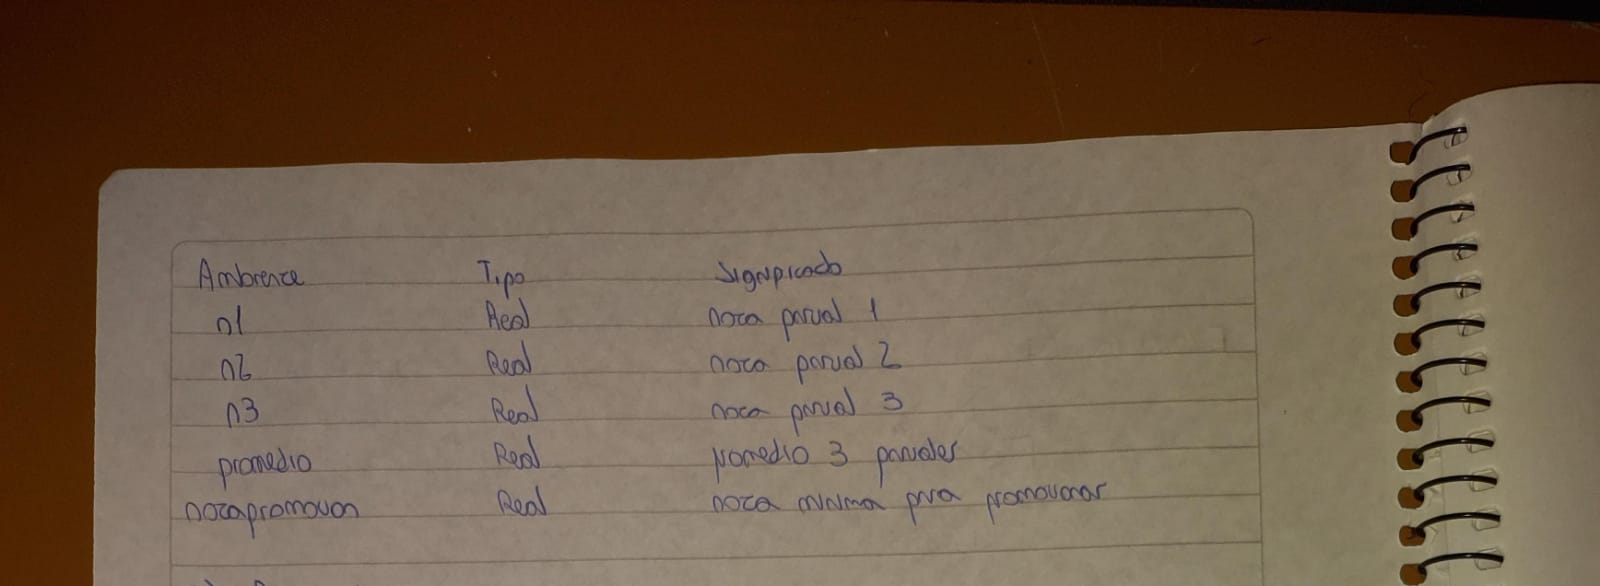 Ambiente Tipo Significado
n1 Real nota parcial 1
n2 Real nota parcial 2
n3 Real nota parcial 3
promedio Real promedio 3 parciales
notapromocion Real nota minima para promocionar